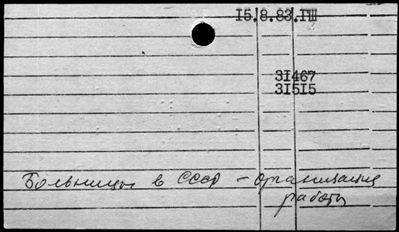 15.8.83.ГШ
31467
31515
Больницы в СССР - организация
работы